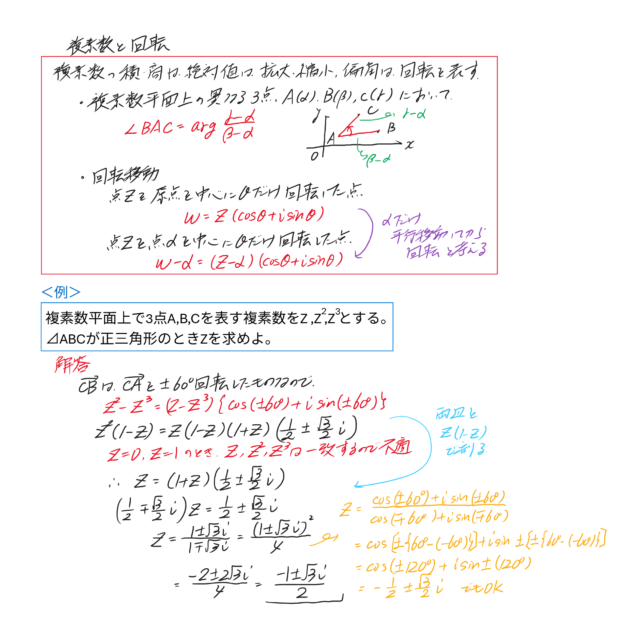 複素数と回転
複素数の積・商は、絶対値は拡大・縮小、偏角は回転を表す
・複素数平面上の異なる3点、A(α), B(β), C(γ)において
∠BAC = arg (γ-α)/(β-α)
y C γ-α
A B
O x
β-α
・回転移動
点Zを原点を中心にθだけ回転した点
w = Z (cosθ+isinθ)
点Zを点αを中心にθだけ回転した点
w-α = (Z-α) (cosθ+isinθ)
αだけ
平行移動してから
回転と考える
<例>
複素数平面上で3点A,B,Cを表す複素数をZ,Z²,Z³とする。
⊿ABCが正三角形のときZを求めよ。
解答
CB→は、CA→を±60°回転したものなので、
Z²-Z³ = (Z-Z³) {cos(±60°)+isin(±60°)}
Z²(1-Z) = Z(1-Z)(1+Z) (1/2 ± √3/2 i)
Z=0, Z=1のとき、Z, Z², Z³は一致するので不適
両辺を
Z(1-Z)
で割る
∴ Z = (1+Z) (1/2 ± √3/2 i)
(1/2 ∓ √3/2 i) Z = 1/2 ± √3/2 i
Z = (1±√3i)/(1∓√3i) = (1±√3i)²/4
= (-2±2√3i)/4 = (-1±√3i)/2
Z = (cos(±60°)+isin(±60°))/(cos(∓60°)+isin(∓60°))
= cos{±{60°-(-60°)}}+isin±{±{60°-(-60°)}}
= cos(±120°)+isin±(120°)
= -1/2 ± √3/2 i でもOK